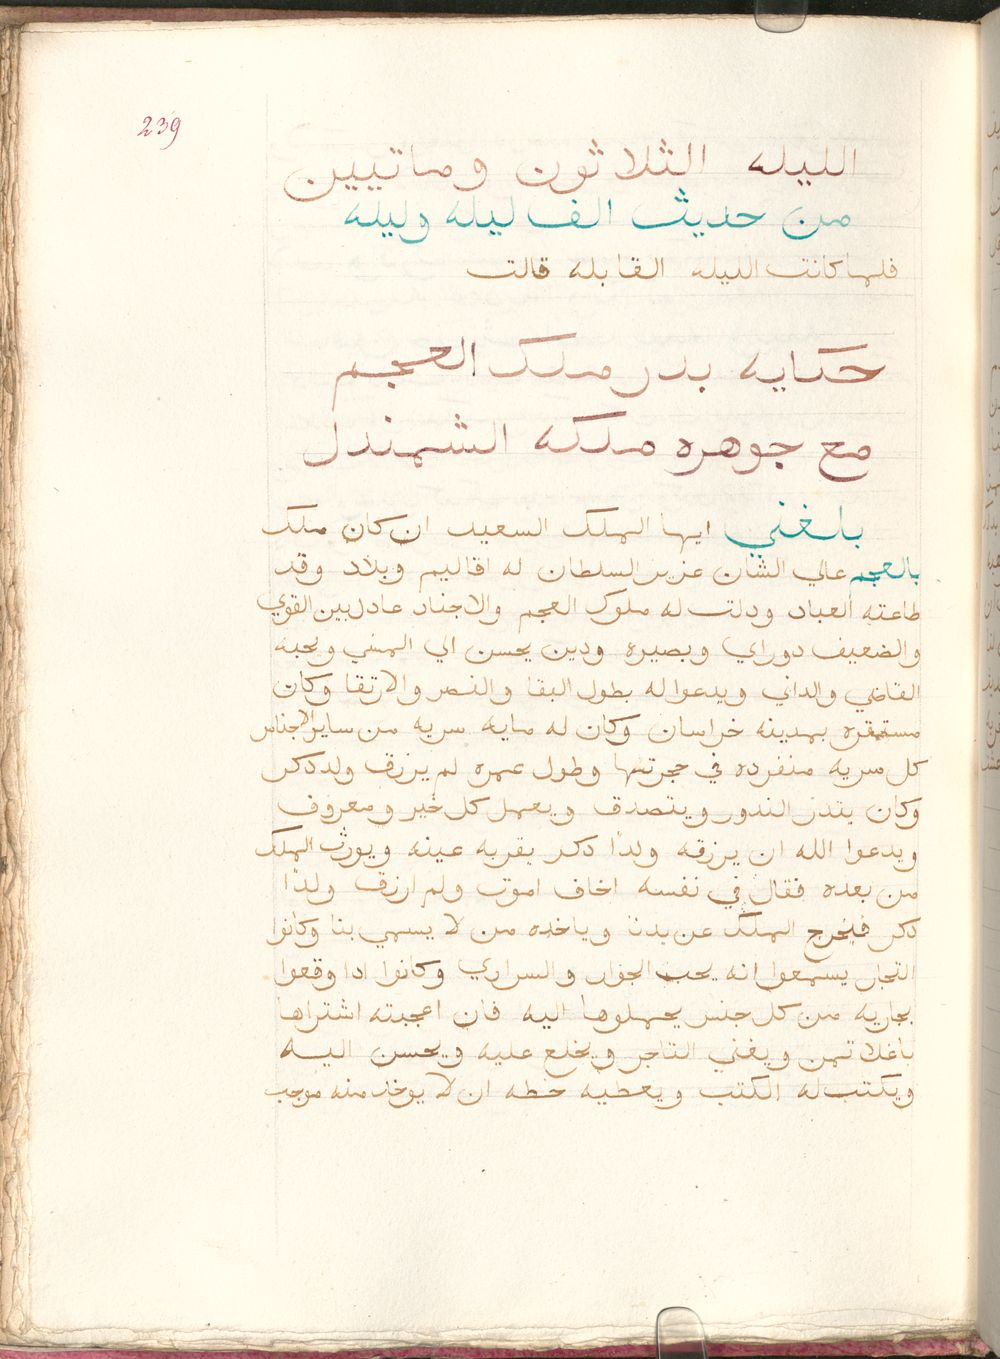 239
الليله الثلاثون وماتيين
من حديث الف ليله وليله
فلما كانت الليله القابله قالت
حكايه بدر ملك العجم
مع جوهره ملكه الشمندل
بلغني ايها الملك السعيد ان كان ملك
بالعجم عالي الشان عزيز السلطان له اقاليم وبلاد وقد
طاعته العباد ودلت له ملوك العجم والاجناد عادل بين القوي
والضعيف دوراي وبصيره ودين يحسن الي المسي ويحبه
القاضي والداني ويدعوا له بطول البقا والنصر والارتقا وكان
مستقره بمدينه خراسان وكان له مايه سريه من ساير الاجناس
كل سريه منفرده في حجرتها وطول عمره لم يرزق ولد دكر
وكان يندر الندور ويتصدق ويعمل كل خير ومعروف
ويدعوا الله ان يرزقه ولدًا دكر يقربه عينه ويورث الملك
من بعده فقال في نفسه اخاف اموت ولم ارزق ولدًا
دكر فيخرج الملك عن يدنا وياخده من لا يسمي بنا وكانوا
التجار يسمعوا انه يحب الجوار والسراري وكانوا ادا وقعوا
بجاريه من كل جنس يحملوها اليه فان اعجبته اشتراها
باغلا تمن ويغني التاجر ويخلع عليه ويحسن اليه
ويكتب له الكتب ويعطيه خطه ان لا يوخد منه موجب